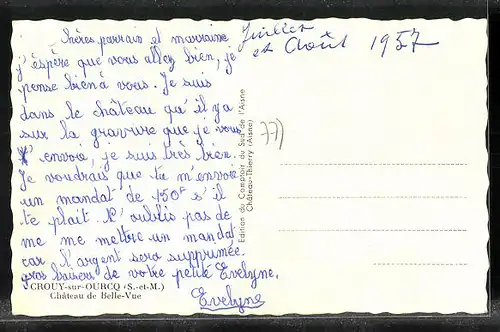 Chères parrain et marraine
j'éspère que vous allez bien, je
pense bien à vous. Je suis
dans le château qu'il y a
sur la gravrure que je vous
envoie, je suis très bien.
Je voudrais que tu m'envoie
un mandat de 150F s'il
te plait. N'oublis pas de
me me mettre un mandat
car l'argent sera supprimée.
gros baisers de votre petite Evelyne.
Evelyne
Juillet
et Août 1957
77)
Edition du Comptoir du Sud de l'Aisne
Château-Thierry (Aisne)
CROUY-sur-OURCQ (S.-et-M.)
Château de Belle-Vue